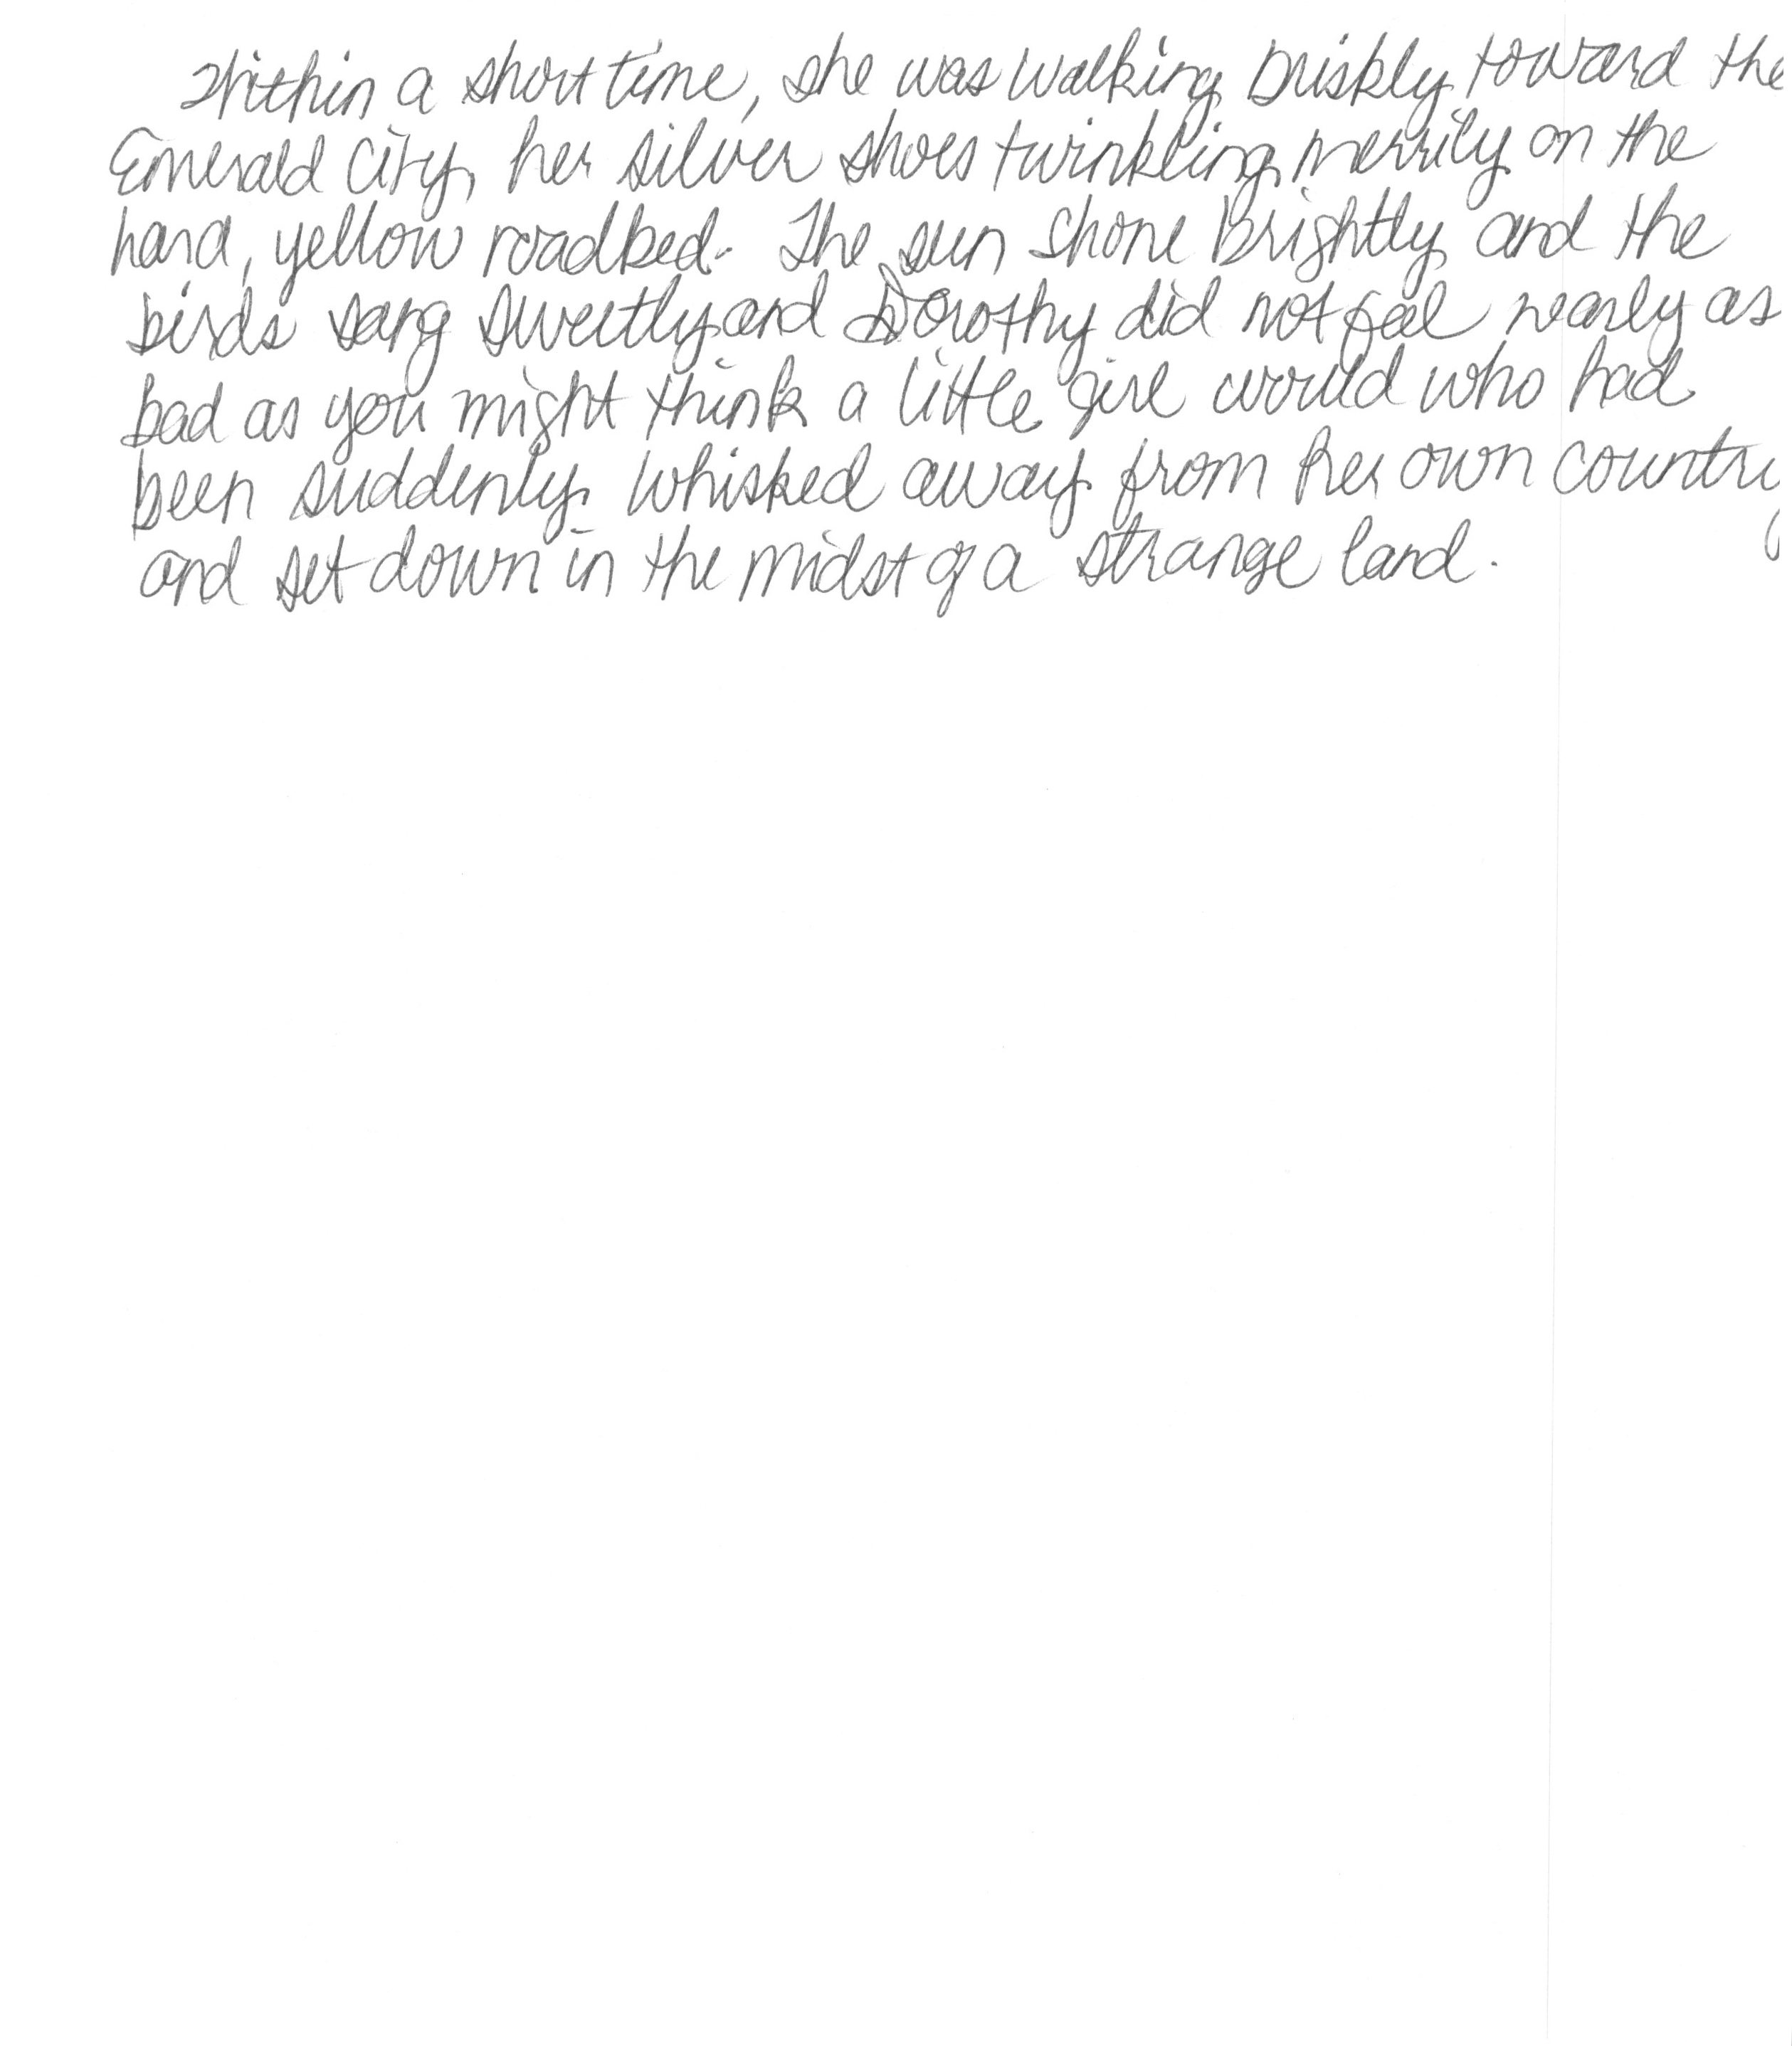 Within a short time, she was walking briskly toward the
Emerald City, her silver shoes twinkling merrily on the
hard, yellow roadbed. The sun shone brightly and the
birds sang sweetly and Dorothy did not feel nearly as
bad as you might think a little girl would who had
been suddenly whisked away from her own country
and set down in the midst of a strange land.